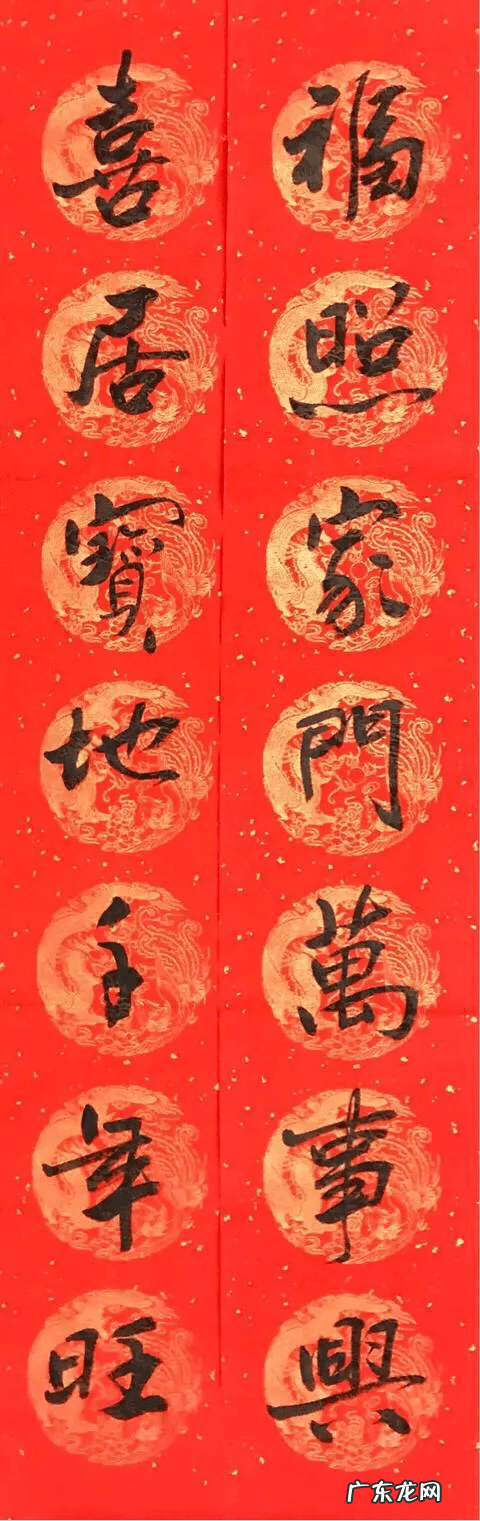 喜居寶地千年旺
福照家門萬事興
广东龙网